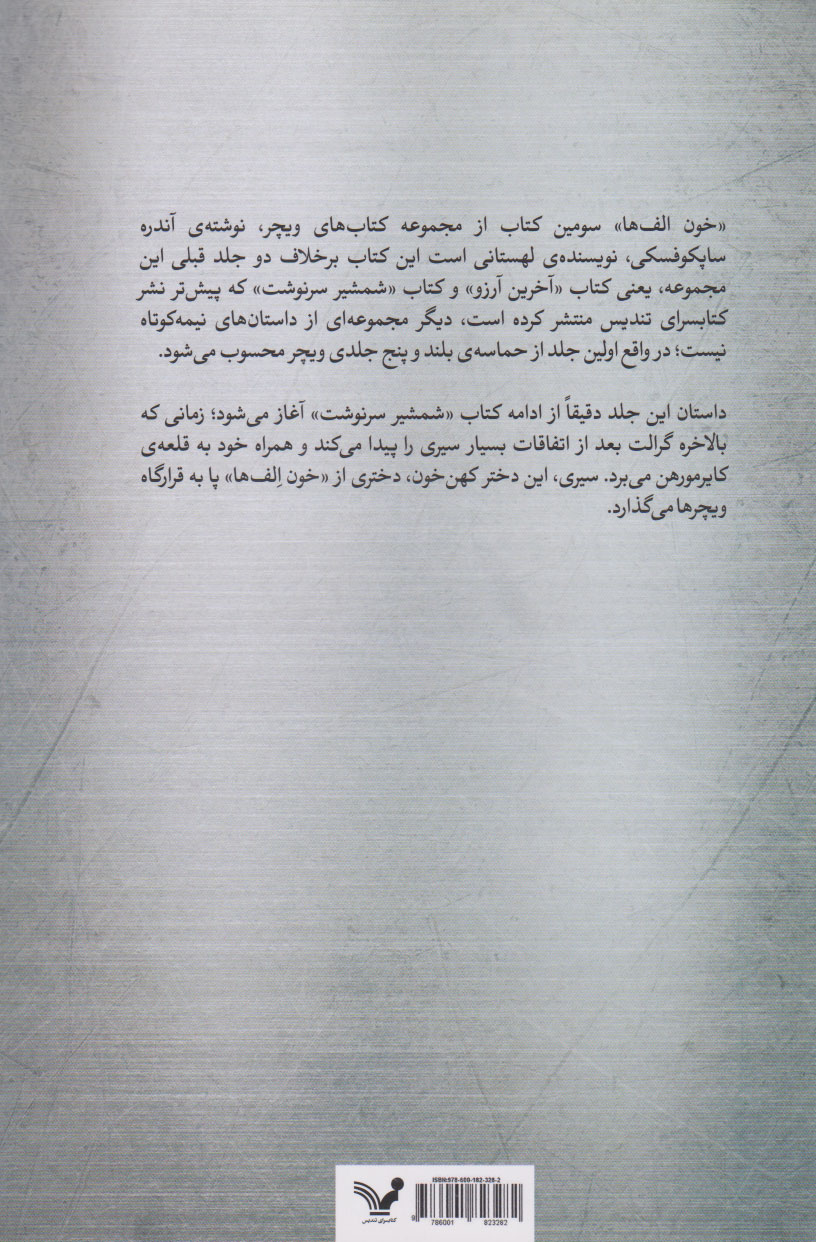 «خون الف‌ها» سومین کتاب از مجموعه کتاب‌های ویچر، نوشته‌ی آندره
ساپکوفسکی، نویسنده‌ی لهستانی است این کتاب برخلاف دو جلد قبلی این
مجموعه، یعنی کتاب «آخرین آرزو» و کتاب «شمشیر سرنوشت» که پیش‌تر نشر
کتابسرای تندیس منتشر کرده است، دیگر مجموعه‌ای از داستان‌های نیمه‌کوتاه
نیست؛ در واقع اولین جلد از حماسه‌ی بلند و پنج جلدی ویچر محسوب می‌شود.
داستان این جلد دقیقاً از ادامه کتاب «شمشیر سرنوشت» آغاز می‌شود؛ زمانی که
بالاخره گرالت بعد از اتفاقات بسیار سیری را پیدا می‌کند و همراه خود به قلعه‌ی
کایرمورهن می‌برد. سیری، این دختر کهن‌خون، دختری از «خون اِلف‌ها» پا به قرارگاه
ویچرها می‌گذارد.
ISBN:978-600-182-328-2
9 786001 823282
کتابسرای تندیس